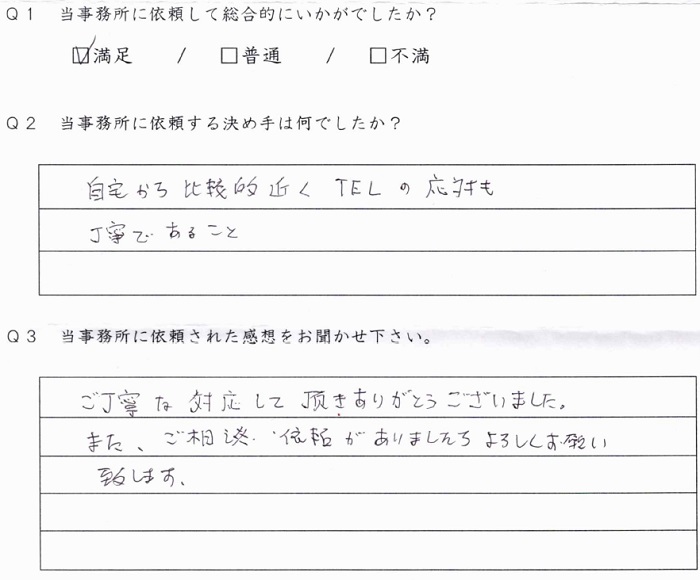 Q1 当事務所に依頼して総合的にいかがでしたか？
☑満足 / □普通 / □不満
Q2 当事務所に依頼する決め手は何でしたか？
自宅から比較的近く TELの応対も
丁寧であること
Q3 当事務所に依頼された感想をお聞かせ下さい。
ご丁寧な対応して頂きありがとうございました。
また、ご相談・依頼がありましたらよろしくお願い
致します。